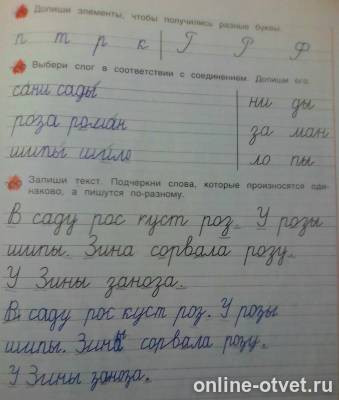 Допиши элементы, чтобы получились разные буквы.
п т р к Г Р Ф
Выбери слог в соответствии с соединением. Допиши его.
са́ни сады́ ни ды
роза рома́н за ман
шипы́ ши́ло ло пы
Запиши текст. Подчеркни слова, которые произносятся оди-
наково, а пишутся по-разному.
В саду рос куст роз. У розы
шипы. Зина сорвала розу.
У Зины заноза.
В саду рос куст роз. У розы
шипы. Зина сорвала розу.
У Зины заноза.
online-otvet.ru